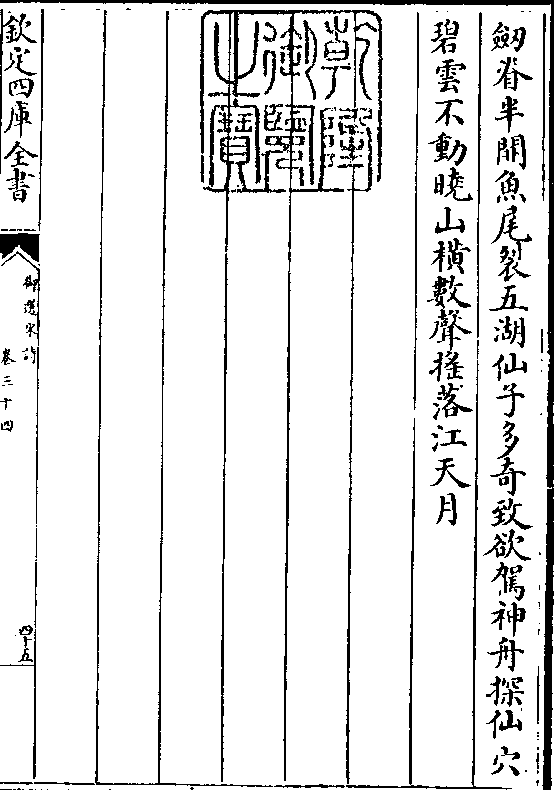 劒脊半開魚尾裂五湖仙子多奇致欲駕神舟探仙穴
碧雲不動曉山橫數聲揺落江天月
乾隆
御覽
之寶
欽定四庫全書
御選宋詩
卷三十四
四十五